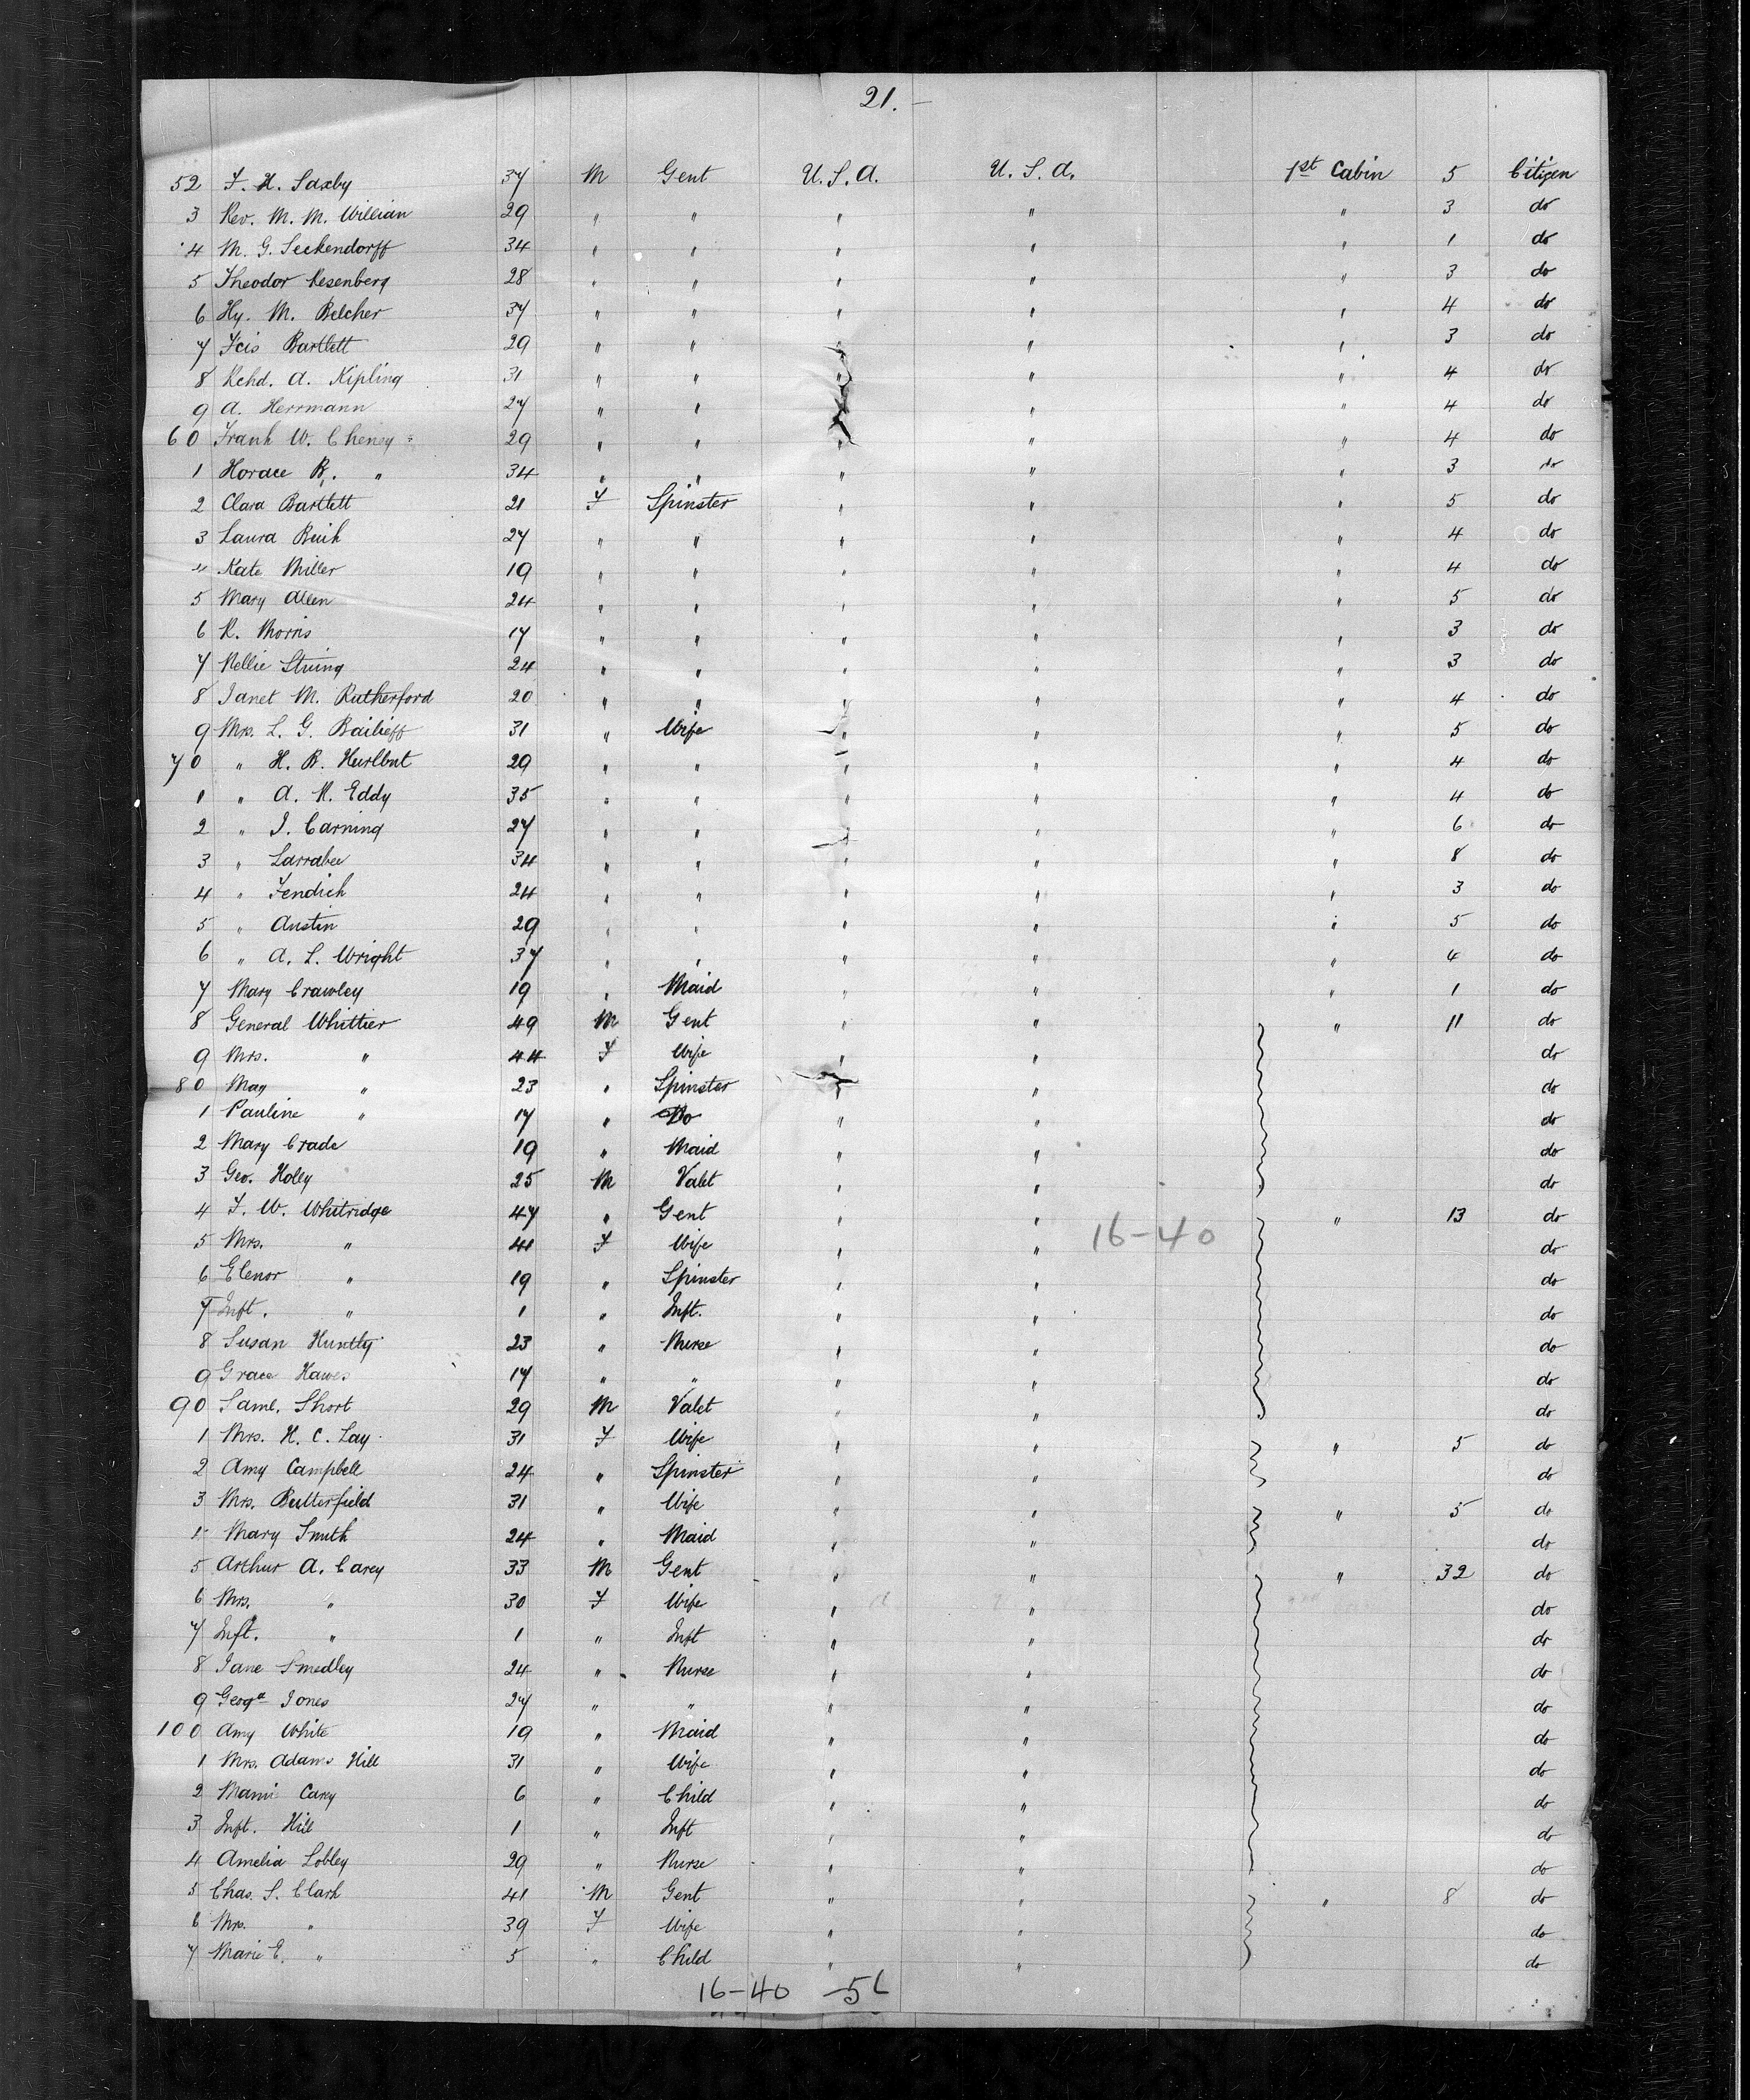 21.-
52 F. H. Saxby 37 M Gent U.S.A. U.S.A. 1st Cabin 5 Citizen
3 Rev. M. M. Willian 29 " " " " " 3 do
4 M. G. Seckendorff 34 " " " " " 1 do
5 Theodor Resenberg 28 " " " " " 3 do
6 Hy. M. Belcher 37 " " " " " 4 do
7 Fcis Bartlett 29 " " " " " 3 do
8 Rchd. A. Kipling 31 " " " " " 4 do
9 A. Herrmann 27 " " " " " 4 do
60 Frank W. Cheney 29 " " " " " 4 do
1 Horace B. " 34 " " " " " 3 do
2 Clara Bartlett 21 F Spinster " " " 5 do
3 Laura 27 " " " " " 4 do
" Kate Miller 19 " " " " " 4 do
5 Mary Allen 24 " " " " " 5 do
6 K. Morris 17 " " " " " 3 do
7 Nellie 24 " " " " " 3 do
8 Janet M. Rutherford 20 " " " " " 4 do
9 Mrs. L. G. Bailieff 31 " Wife " " " 5 do
70 " H. B. Hurlbut 29 " " " " " 4 do
1 " A. K. Eddy 35 " " " " " 4 do
2 " J. Carning 27 " " " " " 6 do
3 " Larrabee 34 " " " " " 8 do
4 " Fendich 24 " " " " " 3 do
5 " Austin 29 " " " " " 5 do
6 " A. L. Wright 37 " " " " " 4 do
7 Mary Crawley 19 " Maid " " " 1 do
8 General Whittier 49 M Gent " " " 11 do
9 Mrs. " 44 F Wife " " do
80 May " 23 " Spinster " " do
1 Pauline " 17 " Do " " do
2 Mary Crade 19 " Maid " " do
3 Geo. Holey 25 M Valet " " do
4 F. W. Whitridge 47 " Gent " " " 13 do
16-40
5 Mrs. " 41 F Wife " " do
6 Elenor " 19 " Spinster " " do
7 Inft. " 1 " Inft. " " do
8 Susan Huntly 23 " Nurse " " do
9 Grace Hawes 17 " " " " do
90 Saml. Short 29 M Valet " " do
1 Mrs. H. C. Lay 31 F Wife " " " 5 do
2 Amy Campbell 24 " Spinster " " do
3 Mrs. Butterfield 31 " Wife " " " 5 do
Mary Smith 24 " Maid " " do
5 Arthur A. Carey 33 M Gent " " " 32 do
6 Mrs. " 30 F Wife " " do
7 Inft. " 1 " Inft " " do
8 Jane Smedley 24 " Nurse " " do
9 Geoga Jones 27 " " " " do
100 Amy White 19 " Maid " " do
1 Mrs. Adams Hill 31 " Wife " " do
2 Mami Cary 6 " Child " " do
3 Inft. Hill 1 " Inft " " do
4 Amelia Lobley 29 " Nurse " " do
5 Chas. S. Clark 41 M Gent " " " 8 do
6 Mrs. " 39 F Wife " " do
7 Marie E. " 5 " Child " " do
16-40